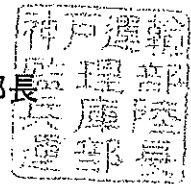 部長
神戸運輸
監理部
兵庫陸
運部長